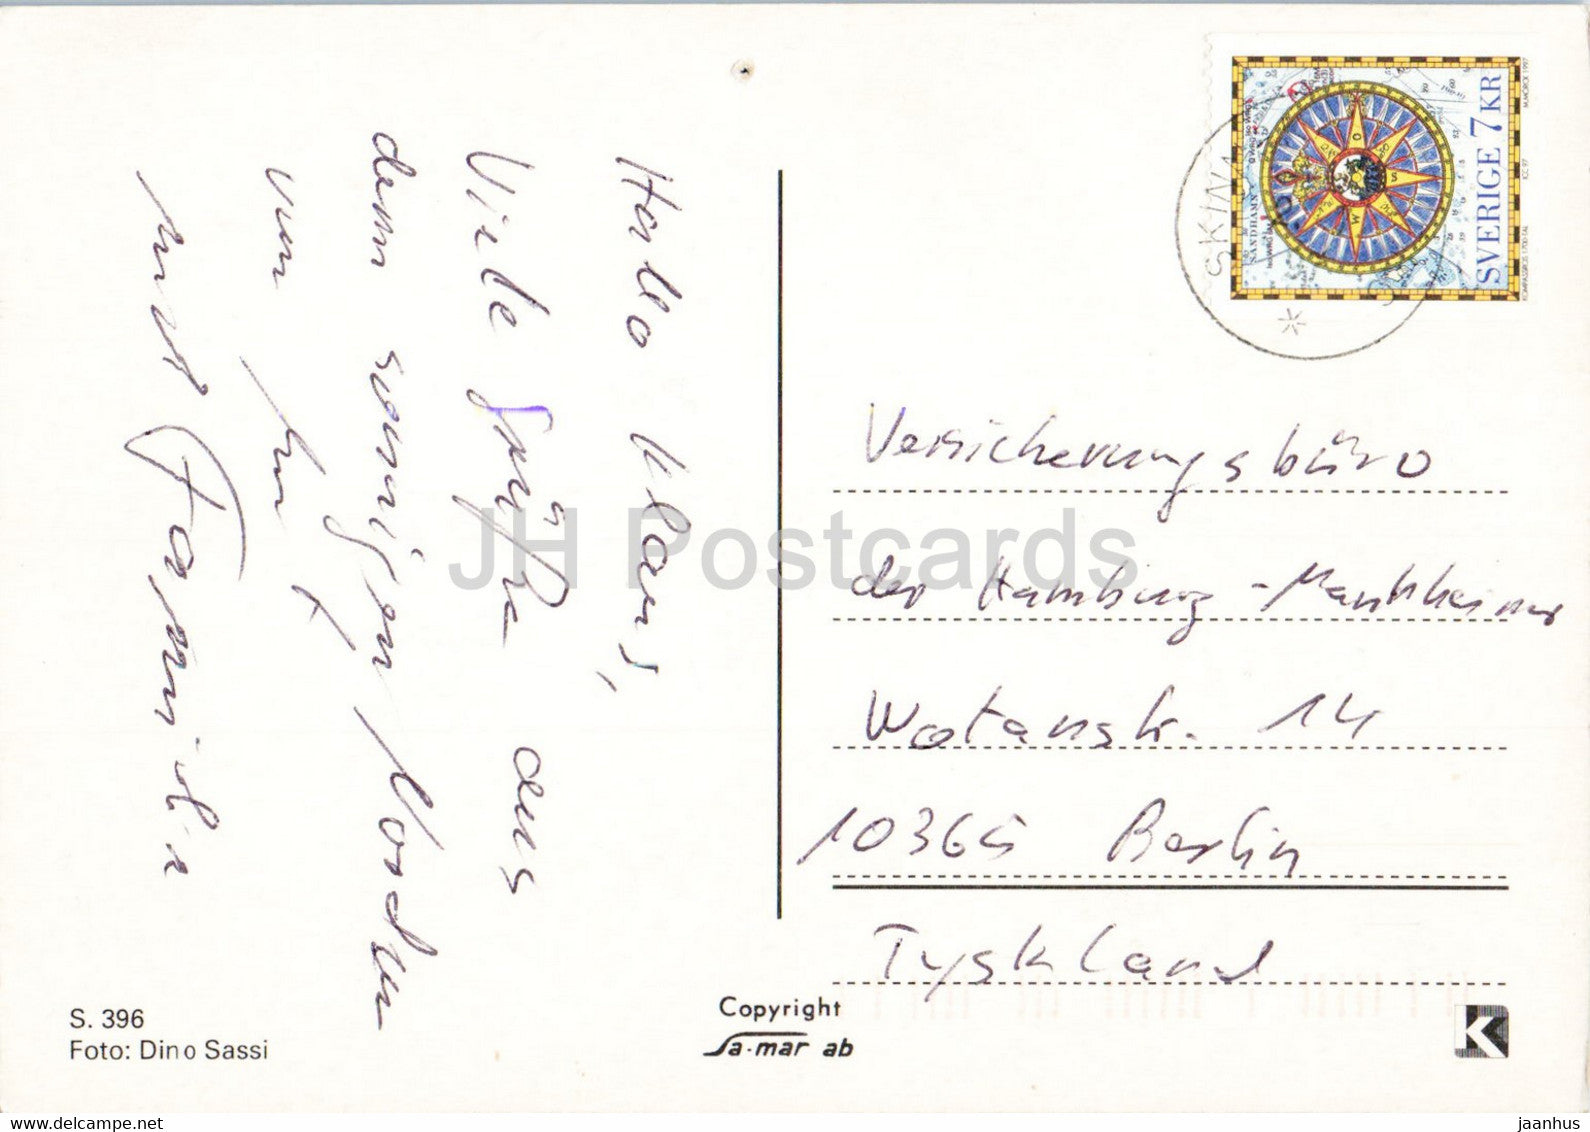 Hallo Klaus,
Viele Grüße aus
dem sonnigen Norden
von
und Familie
Versicherungsbüro
der Hamburg-Mannheimer
Wotanstr. 14
10365 Berlin
Tyskland
SVERIGE 7 KR
SANDHAMN
SKINN
S. 396
Foto: Dino Sassi
Copyright
Sa-mar ab
K
JH Postcards
www.delcampe.net
jaanhus